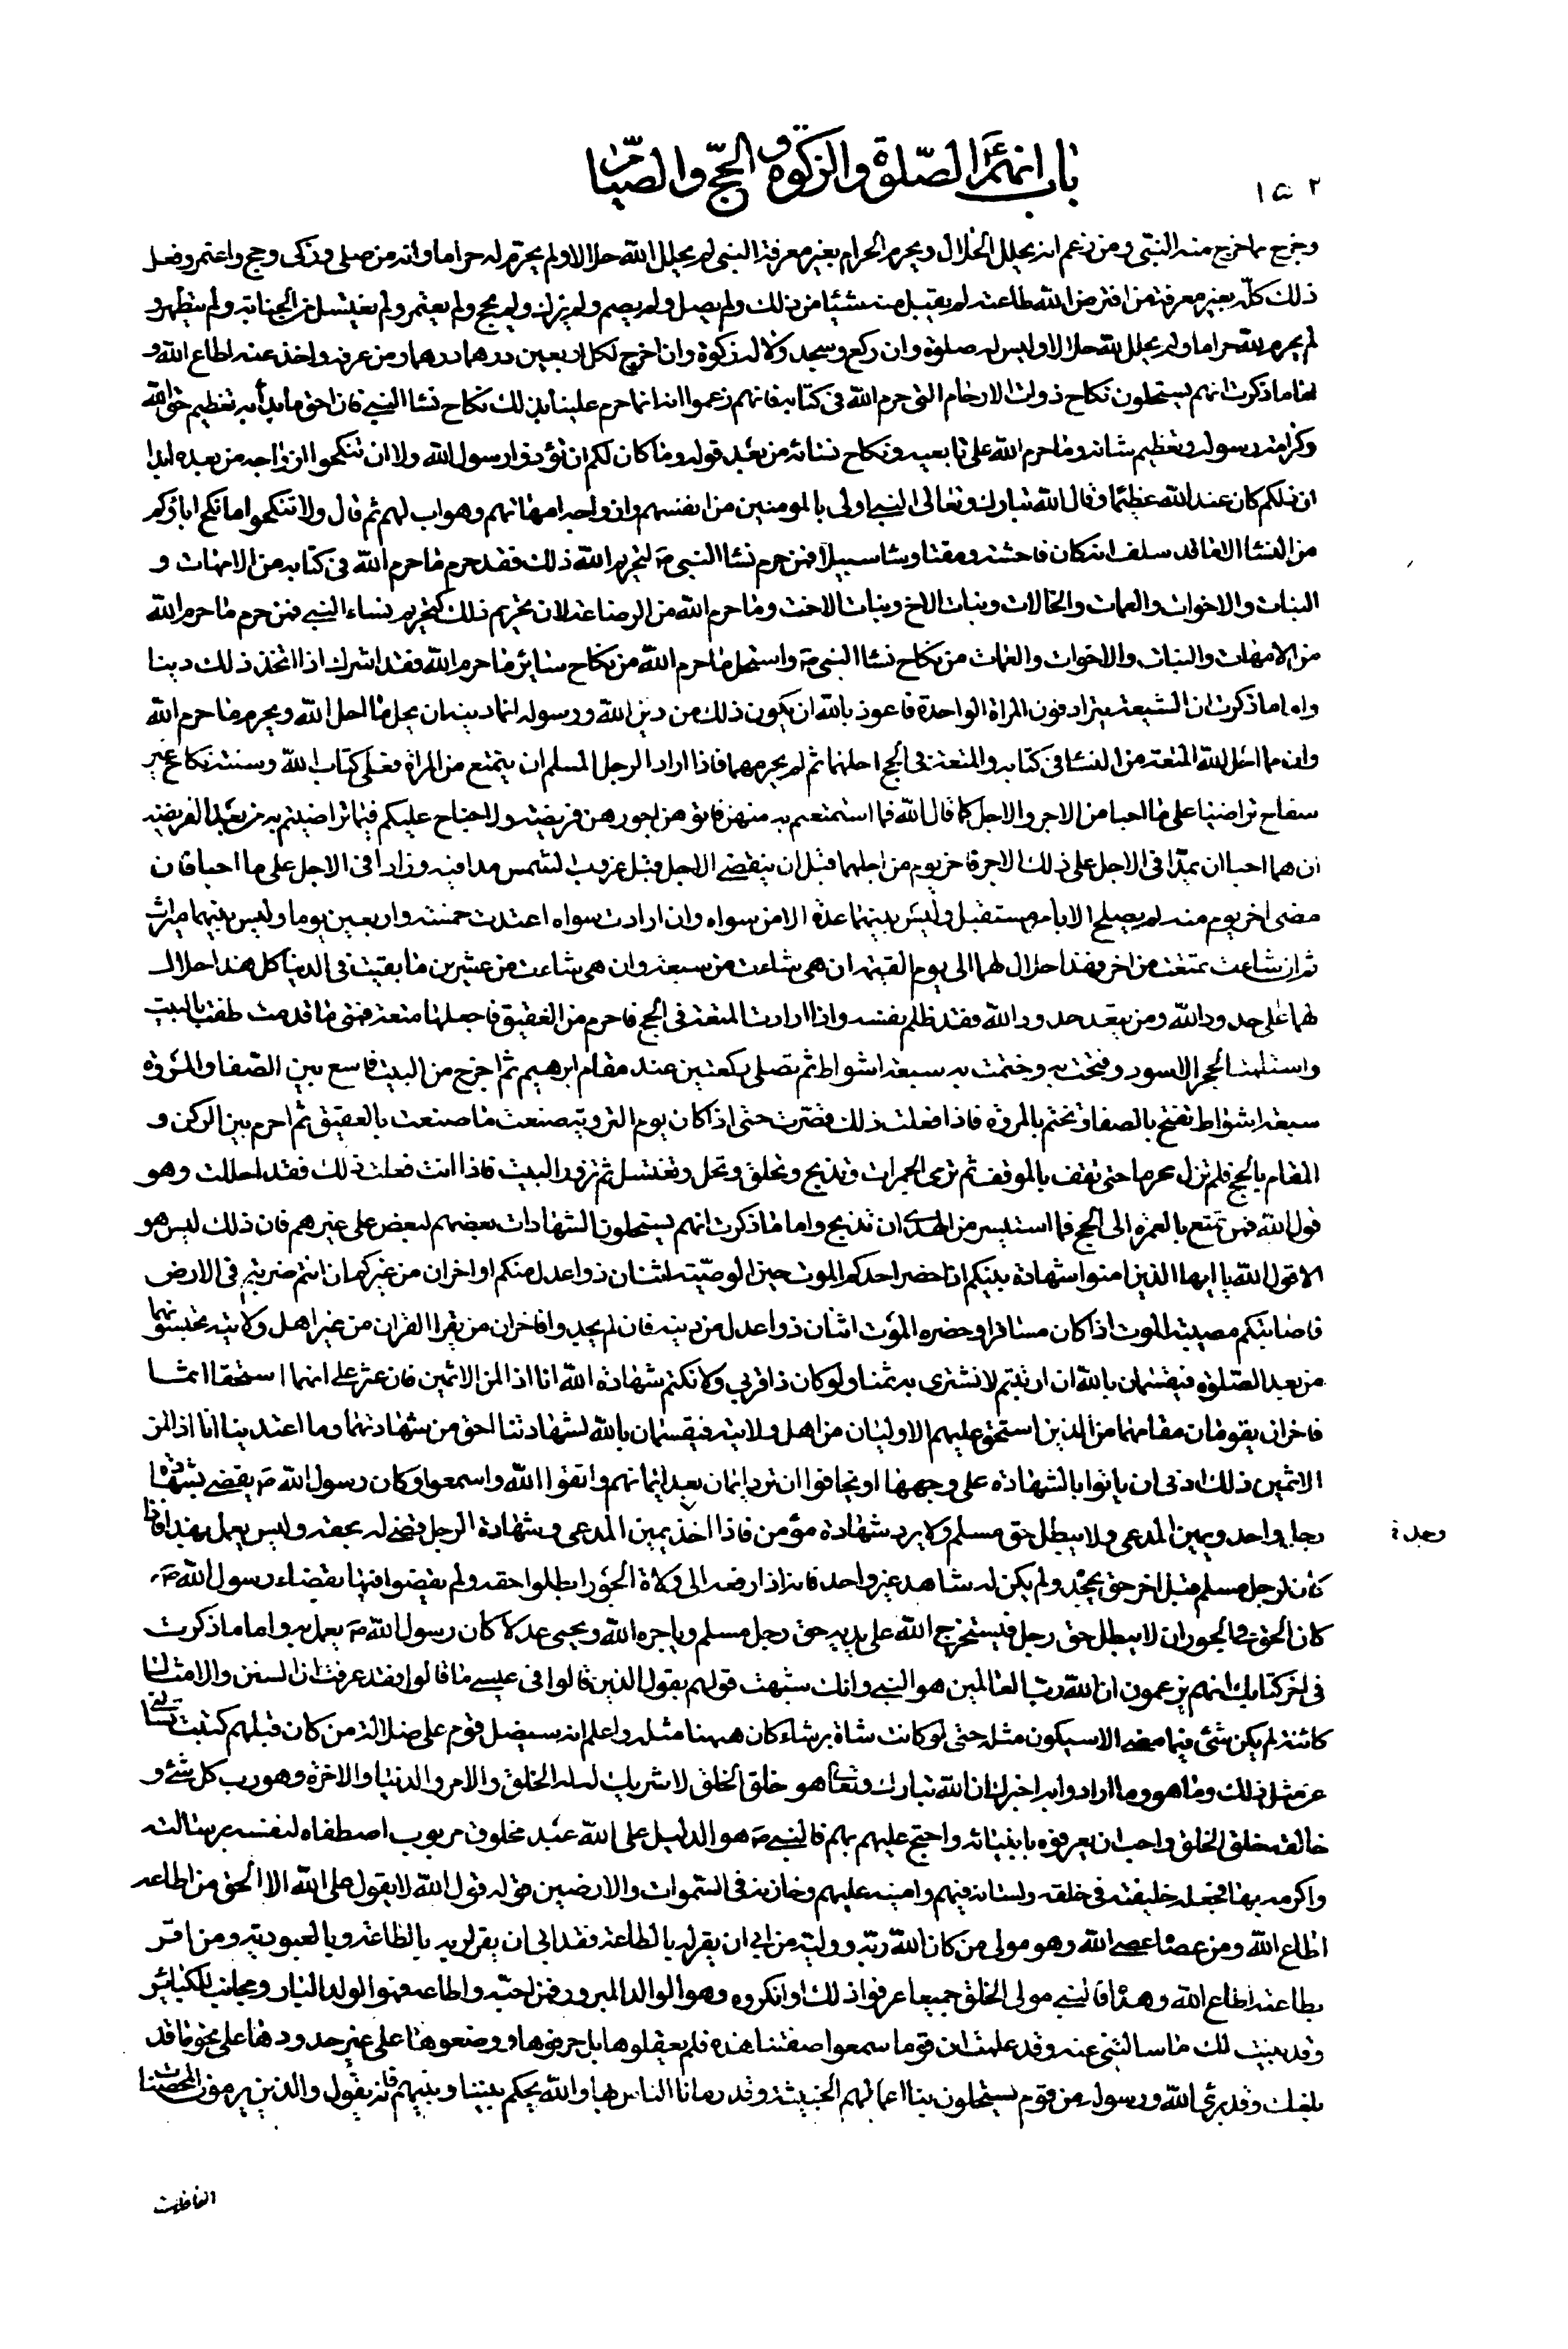 باب انهم ع الصلوة والزكوة والحج والصيام
١٥٢
وخرج مما خرج منه النبي ومن زعم انه يحلل الحلال ويحرم الحرام بغير معرفة النبي لم يحلل الله حلالا ولم يحرم له حراما وانه من صلى وزكى وحج واعتمر وفعل
ذلك كله بغير معرفة من افترض الله طاعته لم يقبل منه شيئا من ذلك ولم يصل ولم يصم ولم يزك ولم يحج ولم يعتمر ولم يغتسل من الجنابة ولم يتطهر و
لم يحرم لله حراما ولم يحلل لله حلالا وليس له صلوة وان ركع وسجد ولا له زكوة وان اخرج لكل اربعين درهما درهما ومن عرفه واخذ عنه اطاع الله و
اما ما ذكرت انهم يستحلون نكاح ذوات الارحام التي حرم الله في كتابه فانهم زعموا انه انما حرم علينا بذلك نكاح نساء النبي فان احق ما بدأ به تعظيم حق الله
وكرامة رسوله وتعظيم شانه وما حرم الله على تابعيه ونكاح نسائه من بعد قوله وما كان لكم ان تؤذوا رسول الله ولا ان تنكحوا ازواجه من بعده ابدا
ان ذلكم كان عند الله عظيما وقال الله تبارك وتعالى النبي اولى بالمومنين من انفسهم وازواجه امهاتهم وهو اب لهم ثم قال ولا تنكحوا ما نكح اباؤكم
من النساء الا ما قد سلف انه كان فاحشة ومقتا وساء سبيلا فمن حرم نساء النبي ص لتحريم الله ذلك فقد حرم ما حرم الله في كتابه من الامهات و
البنات والاخوات والعمات والخالات وبنات الاخ وبنات الاخت وما حرم الله من الرضاعة لان تحريم ذلك كتحريم نساء النبي فمن حرم ما حرم الله
من الامهات والبنات والاخوات والعمات من نكاح نساء النبي ص واستحل ما حرم الله من نكاح سائر ما حرم الله فقد اشرك اذا اتخذ ذلك دينا
واما ما ذكرت ان الشيعة يترادفون المراة الواحدة فاعوذ بالله ان يكون ذلك من دين الله ورسوله انما دينه ان يحل ما احل الله ويحرم ما حرم الله
وان مما احل الله المتعة من النساء في كتابه والمتعة في الحج احلهما ثم لم يحرمهما فاذا اراد الرجل المسلم ان يتمتع من المراة فعلى كتاب الله وسنته نكاح غير
سفاح تراضيا على ما احبا من الاجر والاجل كما قال الله فما استمتعتم به منهن فاتوهن اجورهن فريضة ولا جناح عليكم فيما تراضيتم به من بعد الفريضة
ان هما احبا ان يمدا في الاجل على ذلك الاجر فاخر يوم من اجلهما قبل ان ينقضي الاجل قبل غروب الشمس مدا فيه وزادا في الاجل على ما احبا فان
مضى اخر يوم منه لم يصلح الا بامر مستقبل وليس بينهما عدة الا من سواه وان ارادت سواه اعتدت خمسة واربعين يوما وليس بينهما ميراث
ثم ان شاءت تمتعت من اخر فهذا حلال لهما الى يوم القيمة ان هي شاءت من سبعة وان هي شاءت من عشرين ما بقيت في الدنيا كل هذا حلال
لهما على حدود الله ومن يتعد حدود الله فقد ظلم نفسه واذا اردت المتعة في الحج فاحرم من العقيق فاجعلها متعة فمتى ما قدمت طفت بالبيت
واستلمت الحجر الاسود وفتحت به وختمت به سبعة اشواط ثم تصلي ركعتين عند مقام ابرهيم ثم اخرج من البيت فاسع بين الصفا والمروة
سبعة اشواط تفتح بالصفا وتختم بالمروة فاذا فعلت ذلك قصرت حتى اذا كان يوم التروية صنعت ما صنعت بالعقيق ثم احرم بين الركن و
المقام بالحج فلم تزل محرما حتى تقف بالموقف ثم ترمي الجمرات وتذبح وتحلق وتحل وتغتسل ثم تزور البيت فاذا انت فعلت ذلك فقد احللت وهو
قول الله فمن تمتع بالعمرة الى الحج فما استيسر من الهدي ان تذبح واما ما ذكرت انهم يستحلون الشهادات بعضهم لبعض على غيرهم فان ذلك ليس هو
الا قول الله يا ايها الذين امنوا شهادة بينكم اذا حضر احدكم الموت حين الوصية اثنان ذوا عدل منكم او اخران من غيركم ان انتم ضربتم في الارض
فاصابتكم مصيبة الموت اذا كان مسافرا وحضره الموت اثنان ذوا عدل من دينه فان لم يجدوا فاخران من يقرا القران من غير اهل ولايته تحبسونهما
من بعد الصلوة فيقسمان بالله ان ارتبتم لا نشتري به ثمنا ولو كان ذا قربى ولا نكتم شهادة الله انا اذا لمن الاثمين فان عثر على انهما استحقا اثما
فاخران يقومان مقامهما من الذين استحق عليهم الاوليان من اهل ولايته فيقسمان بالله لشهادتنا احق من شهادتهما وما اعتدينا انا اذا لمن
الاثمين ذلك ادنى ان ياتوا بالشهادة على وجهها او يخافوا ان ترد ايمان بعد ايمانهم واتقوا الله واسمعوا وكان رسول الله ص يقضي بشهادة
رجل واحد ويمين المدعي ولا يبطل حق مسلم ولا يرد شهادة مؤمن فاذا اخذ يمين المدعي وشهادة الرجل قضى له بحقه وليس يعمل بهذا فاذا
وجل ة
كان لرجل مسلم قبل اخر حق يجحد ولم يكن له شاهد غير واحد فانه اذا رفعه الى ولاة الجور ابطلوا حقه ولم يقضوا فيها بقضاء رسول الله ص
كان الحق في الجور ان لا يبطل حق رجل فيستخرج الله على يديه حق رجل مسلم وياجره الله ويحيى عدلا كان رسول الله ص يعمل به واما ما ذكرت
في اخر كتابك انهم يزعمون ان الله رب العالمين هو النبي وانك شبهت قولهم بقول الذين قالوا في عيسى ما قالوا فقد عرفت ان السنن والامثال
كائنة لم يكن شئ فيما مضى الا سيكون مثله حتى لو كانت شاة برشاء كان ههنا مثله واعلم انه سيضل قوم على ضلالة من كان قبلهم كتبت تسالني
عن مثل ذلك وما هو وما ارادوا به اخبرك ان الله تبارك وتعالى هو خلق الخلق لا شريك له له الخلق والامر والدنيا والاخرة وهو رب كل شئ و
خالقه خلق الخلق واحب ان يعرفوه بانبيائه واحتج عليهم بهم فالنبي ص هو الدليل على الله عبد مخلوق مربوب اصطفاه لنفسه برسالته
واكرمه بها فجعله خليفته في خلقه ولسانه فيهم وامينه عليهم وخازنه في السموات والارضين قوله قول الله لا يقول على الله الا الحق من اطاعه
اطاع الله ومن عصاه عصى الله وهو مولى من كان الله ربه ووليه من ابى ان يقر له بالطاعة فقد ابى ان يقر لربه بالطاعة وبالعبودية ومن اقر
بطاعته اطاع الله وهداه فالنبي مولى الخلق جميعا عرفوا ذلك او انكروه وهو الوالد المبرور فمن احبه واطاعه فهو الولد البار ومجانب للكبائر
وقد بينت لك ما سالتني عنه وقد علمت ان قوما سمعوا صفتنا هذه فلم يعقلوها بل حرفوها ووضعوها على غير حدودها على نحو ما قد
بلغك وقد برئ الله ورسوله من قوم يستحلون بنا اعمالهم الخبيثة وقد رمانا الناس بها والله يحكم بيننا وبينهم فانه يقول والذين يرمون المحصنات
الغافلات